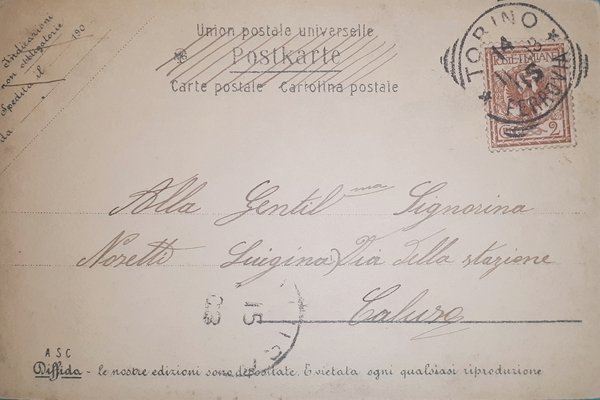 Indicazioni
non obbligatorie
Spedita il 190
da
Union postale universelle
Postkarte
Carte postale Cartolina postale
TORINO
FERROVIA
14
Alla Gentil ma Signorina
Nozetti Luigina Via della stazione
Caluso
15
A S C
Diffida - le nostre edizioni sono depositate. E vietata ogni qualsiasi riproduzione